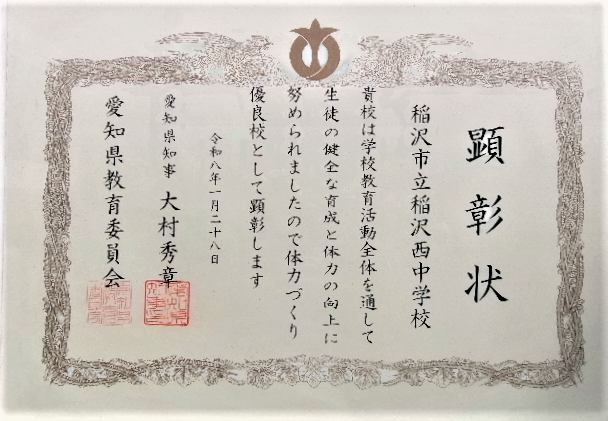 顕彰状
稲沢市立稲沢西中学校
貴校は学校教育活動全体を通して
生徒の健全な育成と体力の向上に
努められましたので体力づくり
優良校として顕彰します
令和八年一月二十八日
愛知県知事 大村秀章
愛知県教育委員会